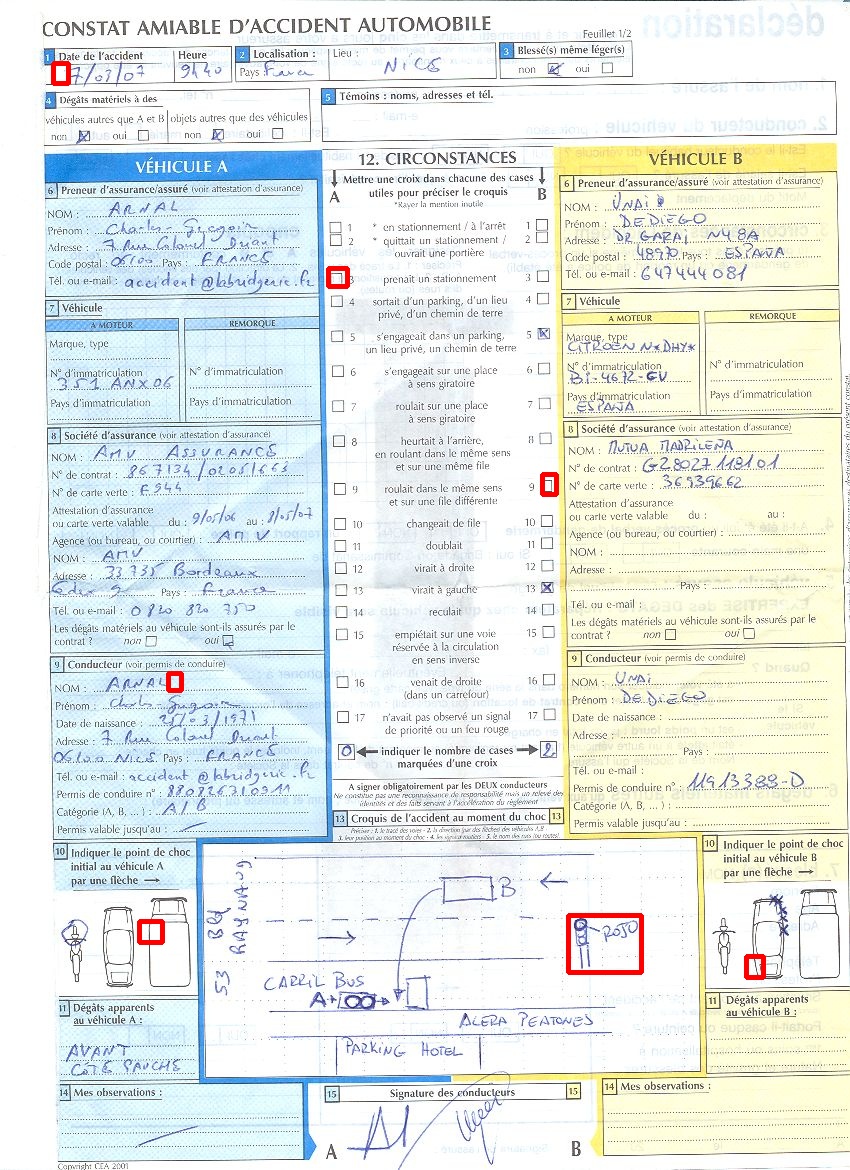 CONSTAT AMIABLE D'ACCIDENT AUTOMOBILE
Feuillet 1/2
1 Date de l'accident
7/03/07
Heure
9h40
2 Localisation :
Pays : France
Lieu :
NICE
3 Blessé(s) même léger(s)
non oui
4 Dégâts matériels à des
véhicules autres que A et B objets autres que des véhicules
non oui non oui
5 Témoins : noms, adresses et tél.
VÉHICULE A
6 Preneur d'assurance/assuré (voir attestation d'assurance)
NOM : ARNAL
Prénom : Charles Grégoire
Adresse : 7 Rue Colonel Driant
Code postal : 06100 Pays : FRANCE
Tél. ou e-mail : accident@labridgerie.fr
7 Véhicule
A MOTEUR
REMORQUE
Marque, type
N° d'immatriculation
351 ANX 06
N° d'immatriculation
Pays d'immatriculation
Pays d'immatriculation
8 Société d'assurance (voir attestation d'assurance)
NOM : AMV ASSURANCE
N° de contrat : 867134/0205/663
N° de carte verte : F944
Attestation d'assurance
ou carte verte valable du : 9/05/06 au : 8/05/07
Agence (ou bureau, ou courtier) : AMV
NOM : AMV
Adresse : 33735 Bordeaux
Cedex 9 Pays : France
Tél. ou e-mail : 0820 820 750
Les dégâts matériels au véhicule sont-ils assurés par le
contrat ? non oui
9 Conducteur (voir permis de conduire)
NOM : ARNAL
Prénom : Charles Grégoire
Date de naissance : 25/03/1971
Adresse : 7 Rue Colonel Driant
06100 NICE Pays : FRANCE
Tél. ou e-mail : accident@labridgerie.fr
Permis de conduire n° : 880826310911
Catégorie (A, B, ... ) : A/B
Permis valable jusqu'au :
10 Indiquer le point de choc
initial au véhicule A
par une flèche
11 Dégâts apparents
au véhicule A :
AVANT
CÔTÉ GAUCHE
14 Mes observations :
12. CIRCONSTANCES
Mettre une croix dans chacune des cases
utiles pour préciser le croquis
A B
*Rayer la mention inutile
1 * en stationnement / à l'arrêt 1
2 * quittait un stationnement / 2
ouvrait une portière
3 prenait un stationnement 3
4 sortait d'un parking, d'un lieu 4
privé, d'un chemin de terre
5 s'engageait dans un parking, 5
un lieu privé, un chemin de terre
6 s'engageait sur une place 6
à sens giratoire
7 roulait sur une place 7
à sens giratoire
8 heurtait à l'arrière, 8
en roulant dans le même sens
et sur une même file
9 roulait dans le même sens 9
et sur une file différente
10 changeait de file 10
11 doublait 11
12 virait à droite 12
13 virait à gauche 13
14 reculait 14
15 empiétait sur une voie 15
réservée à la circulation
en sens inverse
16 venait de droite 16
(dans un carrefour)
17 n'avait pas observé un signal 17
de priorité ou un feu rouge
0 indiquer le nombre de cases 2
marquées d'une croix
A signer obligatoirement par les DEUX conducteurs
Ne constitue pas une reconnaissance de responsabilité mais un relevé des
identités et des faits servant à l'accélération du règlement
13 Croquis de l'accident au moment du choc 13
Préciser : 1. le tracé des voies - 2. la direction (par des flèches) des véhicules A,B
3. leur position au moment du choc - 4. les signaux routiers - 5. le nom des rues (ou routes)
53 Bld RAYNAUD
B
ROJO
CARRIL BUS
A
ACERA PEATONES
PARKING HOTEL
15 Signature des conducteurs 15
A B
VÉHICULE B
6 Preneur d'assurance/assuré (voir attestation d'assurance)
NOM : UNAI
Prénom : DE DIEGO
Adresse : DR GARAI Nº 8A
Code postal : 48970 Pays : ESPAÑA
Tél. ou e-mail : 647444081
7 Véhicule
A MOTEUR
REMORQUE
Marque, type
CITROEN N*DHY*
N° d'immatriculation
BI-4672-CV
N° d'immatriculation
Pays d'immatriculation
ESPAÑA
Pays d'immatriculation
8 Société d'assurance (voir attestation d'assurance)
NOM : MUTUA MADRILEÑA
N° de contrat : G28027118101
N° de carte verte : 36939662
Attestation d'assurance
ou carte verte valable du : au :
Agence (ou bureau, ou courtier) :
NOM :
Adresse :
Pays :
Tél. ou e-mail :
Les dégâts matériels au véhicule sont-ils assurés par le
contrat ? non oui
9 Conducteur (voir permis de conduire)
NOM : UNAI
Prénom : DE DIEGO
Date de naissance :
Adresse :
Pays :
Tél. ou e-mail :
Permis de conduire n° : 11913389-D
Catégorie (A, B, ... ) :
Permis valable jusqu'au :
10 Indiquer le point de choc
initial au véhicule B
par une flèche
11 Dégâts apparents
au véhicule B :
14 Mes observations :
Copyright CEA 2001